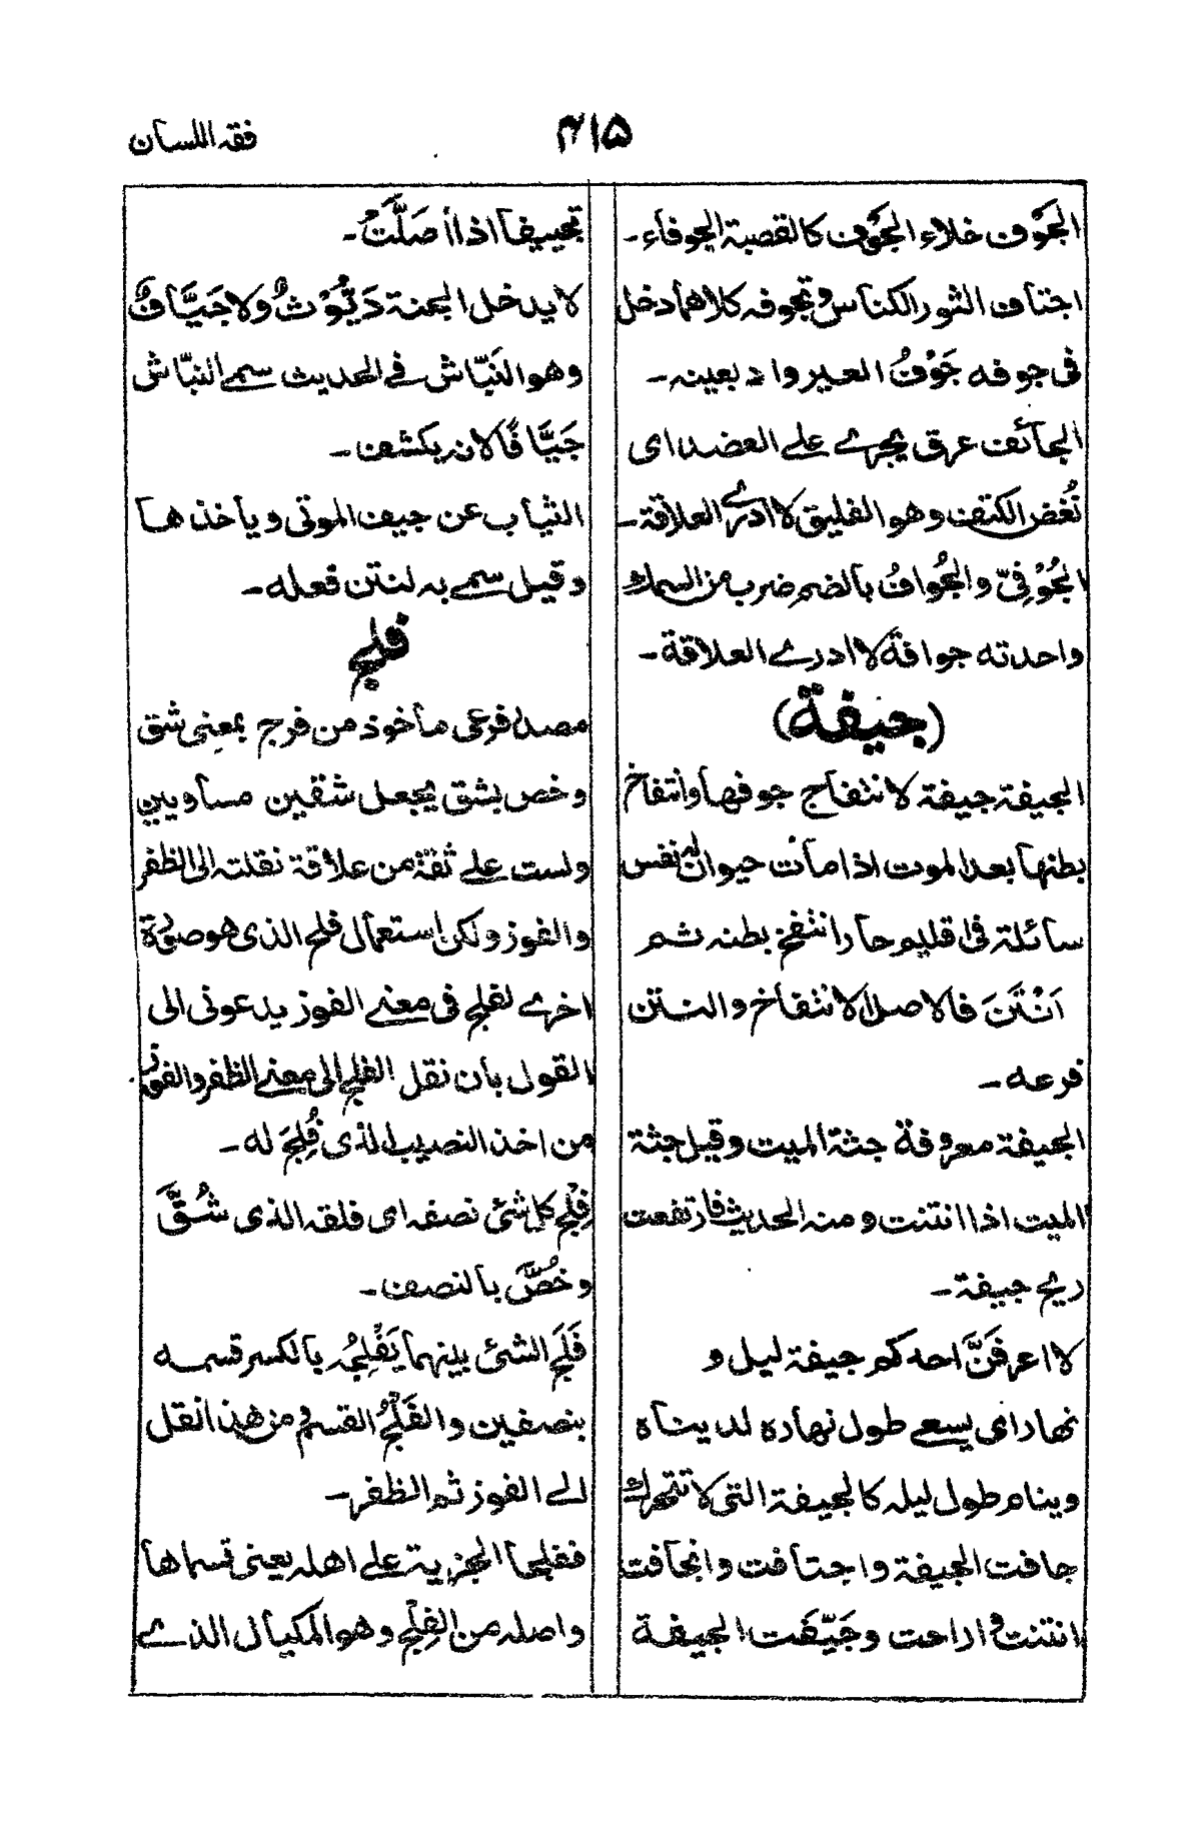 فقه اللسان
۳۱۵
الجَوْف خلاء الجَوْف كالقصبة الجوفاء۔
اجتاف الثور الكناس وتجوفه كلاهما دخل
فى جوفه جَوْفُ العير واد بعينه۔
الجائف عرق يجرے علے العضد اى
نُغض الكتف وهو الفليق لا ادرے العلاقة۔
الجُوْفِىّ والجُوافُ بالضم ضرب من السمك
واحدته جوافة لا ادرے العلاقة۔
(جيفة)
الجيفة جيفة لانتفاج جوفها وانتفاخ
بطنها بعد الموت اذا مات حيوان له نفس
سائلة فى اقليم حار انتفخ بطنه ثم
اَنْتَنَ فالاصل الانتفاخ والنتن
فرعه۔
الجيفة معروفة جثة الميت وقيل جثة
الميت اذا انتنت ومنه الحديث فارتفعت
ريح جيفة۔
لا اعرفَنَّ احدكم جيفة ليل و
نهار اى يسعے طول نهاره لدنياه
وينام طول ليله كالجيفة التى لا تتحرك
جافت الجيفة واجتافت وانجافت
انتنت و اراحت وجَيّفت الجيفة
تجييفا اذا اصَلَّتْ۔
لا يدخل الجنة دَيُّوْثٌ ولا جَيَّافٌ
وهو النَبّاش فے الحديث سمے النبّاش
جَيَّافًا لانه يكشف۔
الثياب عن جيف الموتى وياخذها
وقيل سمے به لنتن فعله۔
فلج
مصدر فرعى ماخوذ من فرج بمعنى شق
وخص بشق يجعل شقين مساويين
ولست علے ثقة من علاقة نقلته الى الظفر
والفوز ولكن استعمال فلج الذى هو صورة
اخرے لفلج فى معنے الفوز يدعونى الى
القول بان نقل الفلج الى معنے الظفر والفوز
من اخذ النصيب الذى فُلِجَ له۔
فِلْج كل شئ نصفه اى فلقه الذى شُقَّ
وخُصَّ بالنصف۔
فَلَجَ الشئ بينهما يَفْلِجُه بالكسر قسمه
بنصفين والفَلْجُ القسم و من هذا نقل
الے الفوز ثم الظفر۔
ففلجا الجزية علے اهله يعنى قسماها
واصله من الفِلْج وهو المكيال الذے